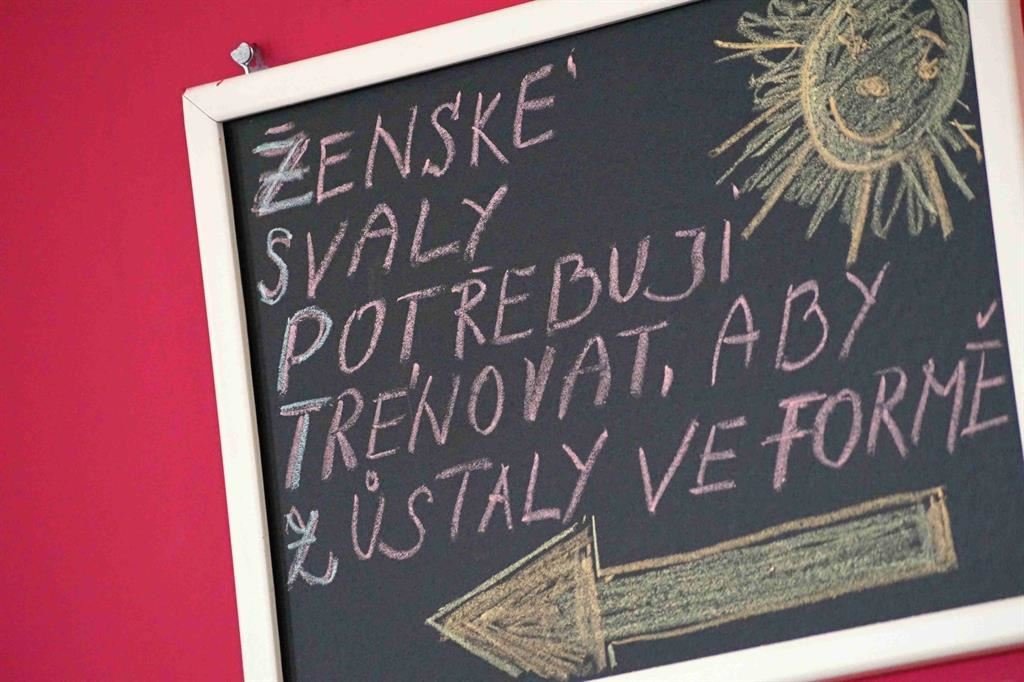 ŽENSKÉ
SVALY
POTŘEBUJÍ
TRÉNOVAT, ABY
ZŮSTALY VE FORMĚ